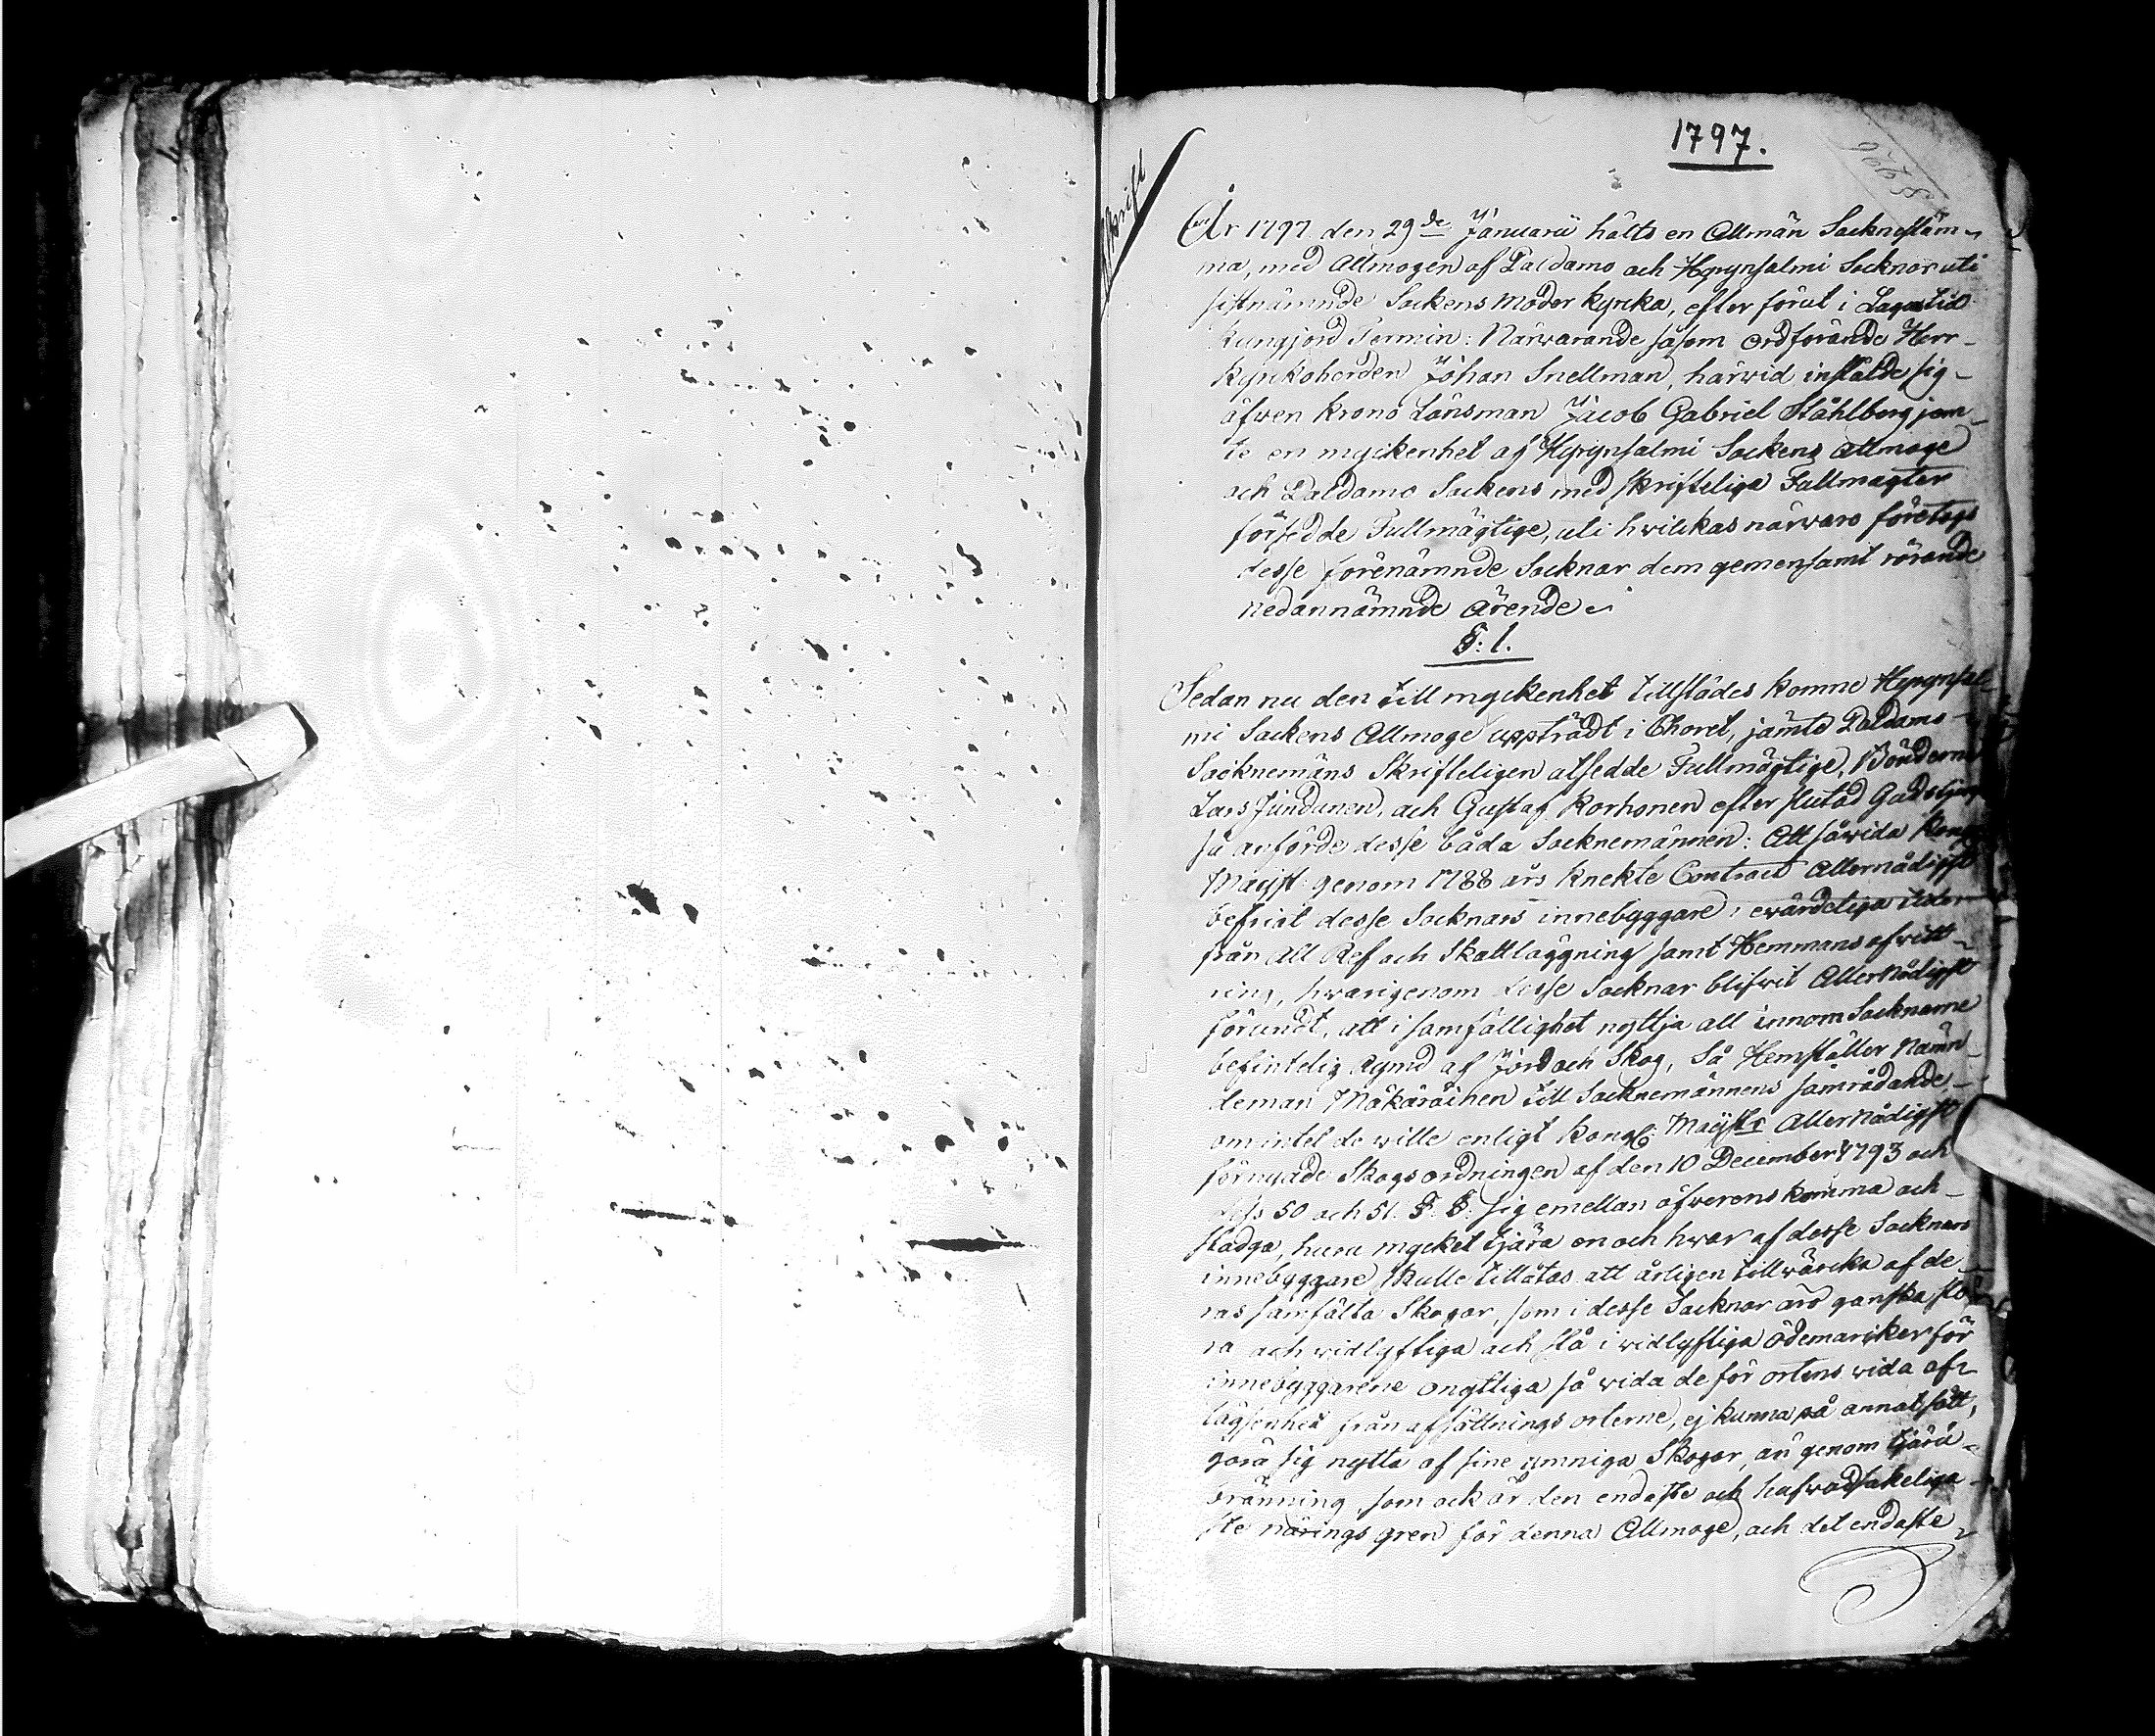 1797.
Afskrift
År 1797 den 29de Januarii hålts en Allmän Sockneståm-
ma, med Allmogen af Paldamo och Hyrynsalmi Socknar uti
sistnämnde Sockens Moder kyrka, efter förut i Laga tid
kungjord Termin: Närwarande såsom ordförande Herr
Kyrkoherden Johan Snellman, härwid instälde sig
äfwen Krono Länsman Jacob Gabriel Ståhlberg jem-
te en myckenhet af Hyrynsalmi Sockens Allmoge
och Paldamo Sockens med skrifteliga Fullmagter
försedde Fullmägtige, uti hwilckas närwaro företogs
desse förenämnde Socknar dem gemensamt rörande
nedannämnde ärende.
§: 1.
Sedan nu den till myckenhet tillstädes komne Hyrynsal-
mi Sockens Allmoge uppträdt i Choret, jämte Paldamo
Socknemäns Skrifteligen utsedde Fullmägtige, Bönderne
Lars Jundunen, och Gustaf Korhonen efter slutad Gudstjenst
så anförde desse båda Socknemännen: Att såwida Kongl
Maijst: genom 1788 års Knekte Contract Allernådigst
befriat desse Socknars innebyggare i ewärdeliga tider
från all Ref och Skattläggning samt Hemmans afwitt-
ring, hwarigenom desse Socknar blifwit Allernådigst
förundt, att i samfällighet nyttja all innom Socknarne
befintelig rymd af Jord och Skog, Så Hemställer Nämn-
deman Mäkäräinen till Socknemännens samrådande
om intet de wille enligt Kongl: Maijsts Allernådigst
förnyade Skogsordningen af den 10 December 1793 och
dess 50 och 51. §. §. sig emellan öfwerenskomma och
stadga, huru mycket tjära en och hwar af desse Socknars
innebyggare skulle tillåtas att årligen tillwärcka af de-
ras samfälta Skogar, som i desse Socknar äro ganska sto-
ra och widlyftiga och stå i widlyftiga ödemarcker för
innebyggarene onyttiga så wida de för ortens wida af-
lägsenhet från afsättnings orterne, ej kunna på annat sätt,
göra sig nytta af sine ymniga Skogar, än genom tjäru-
bränning, som ock är den endaste och hufwudsakeliga-
ste närings gren för denna Allmoge, och det endaste